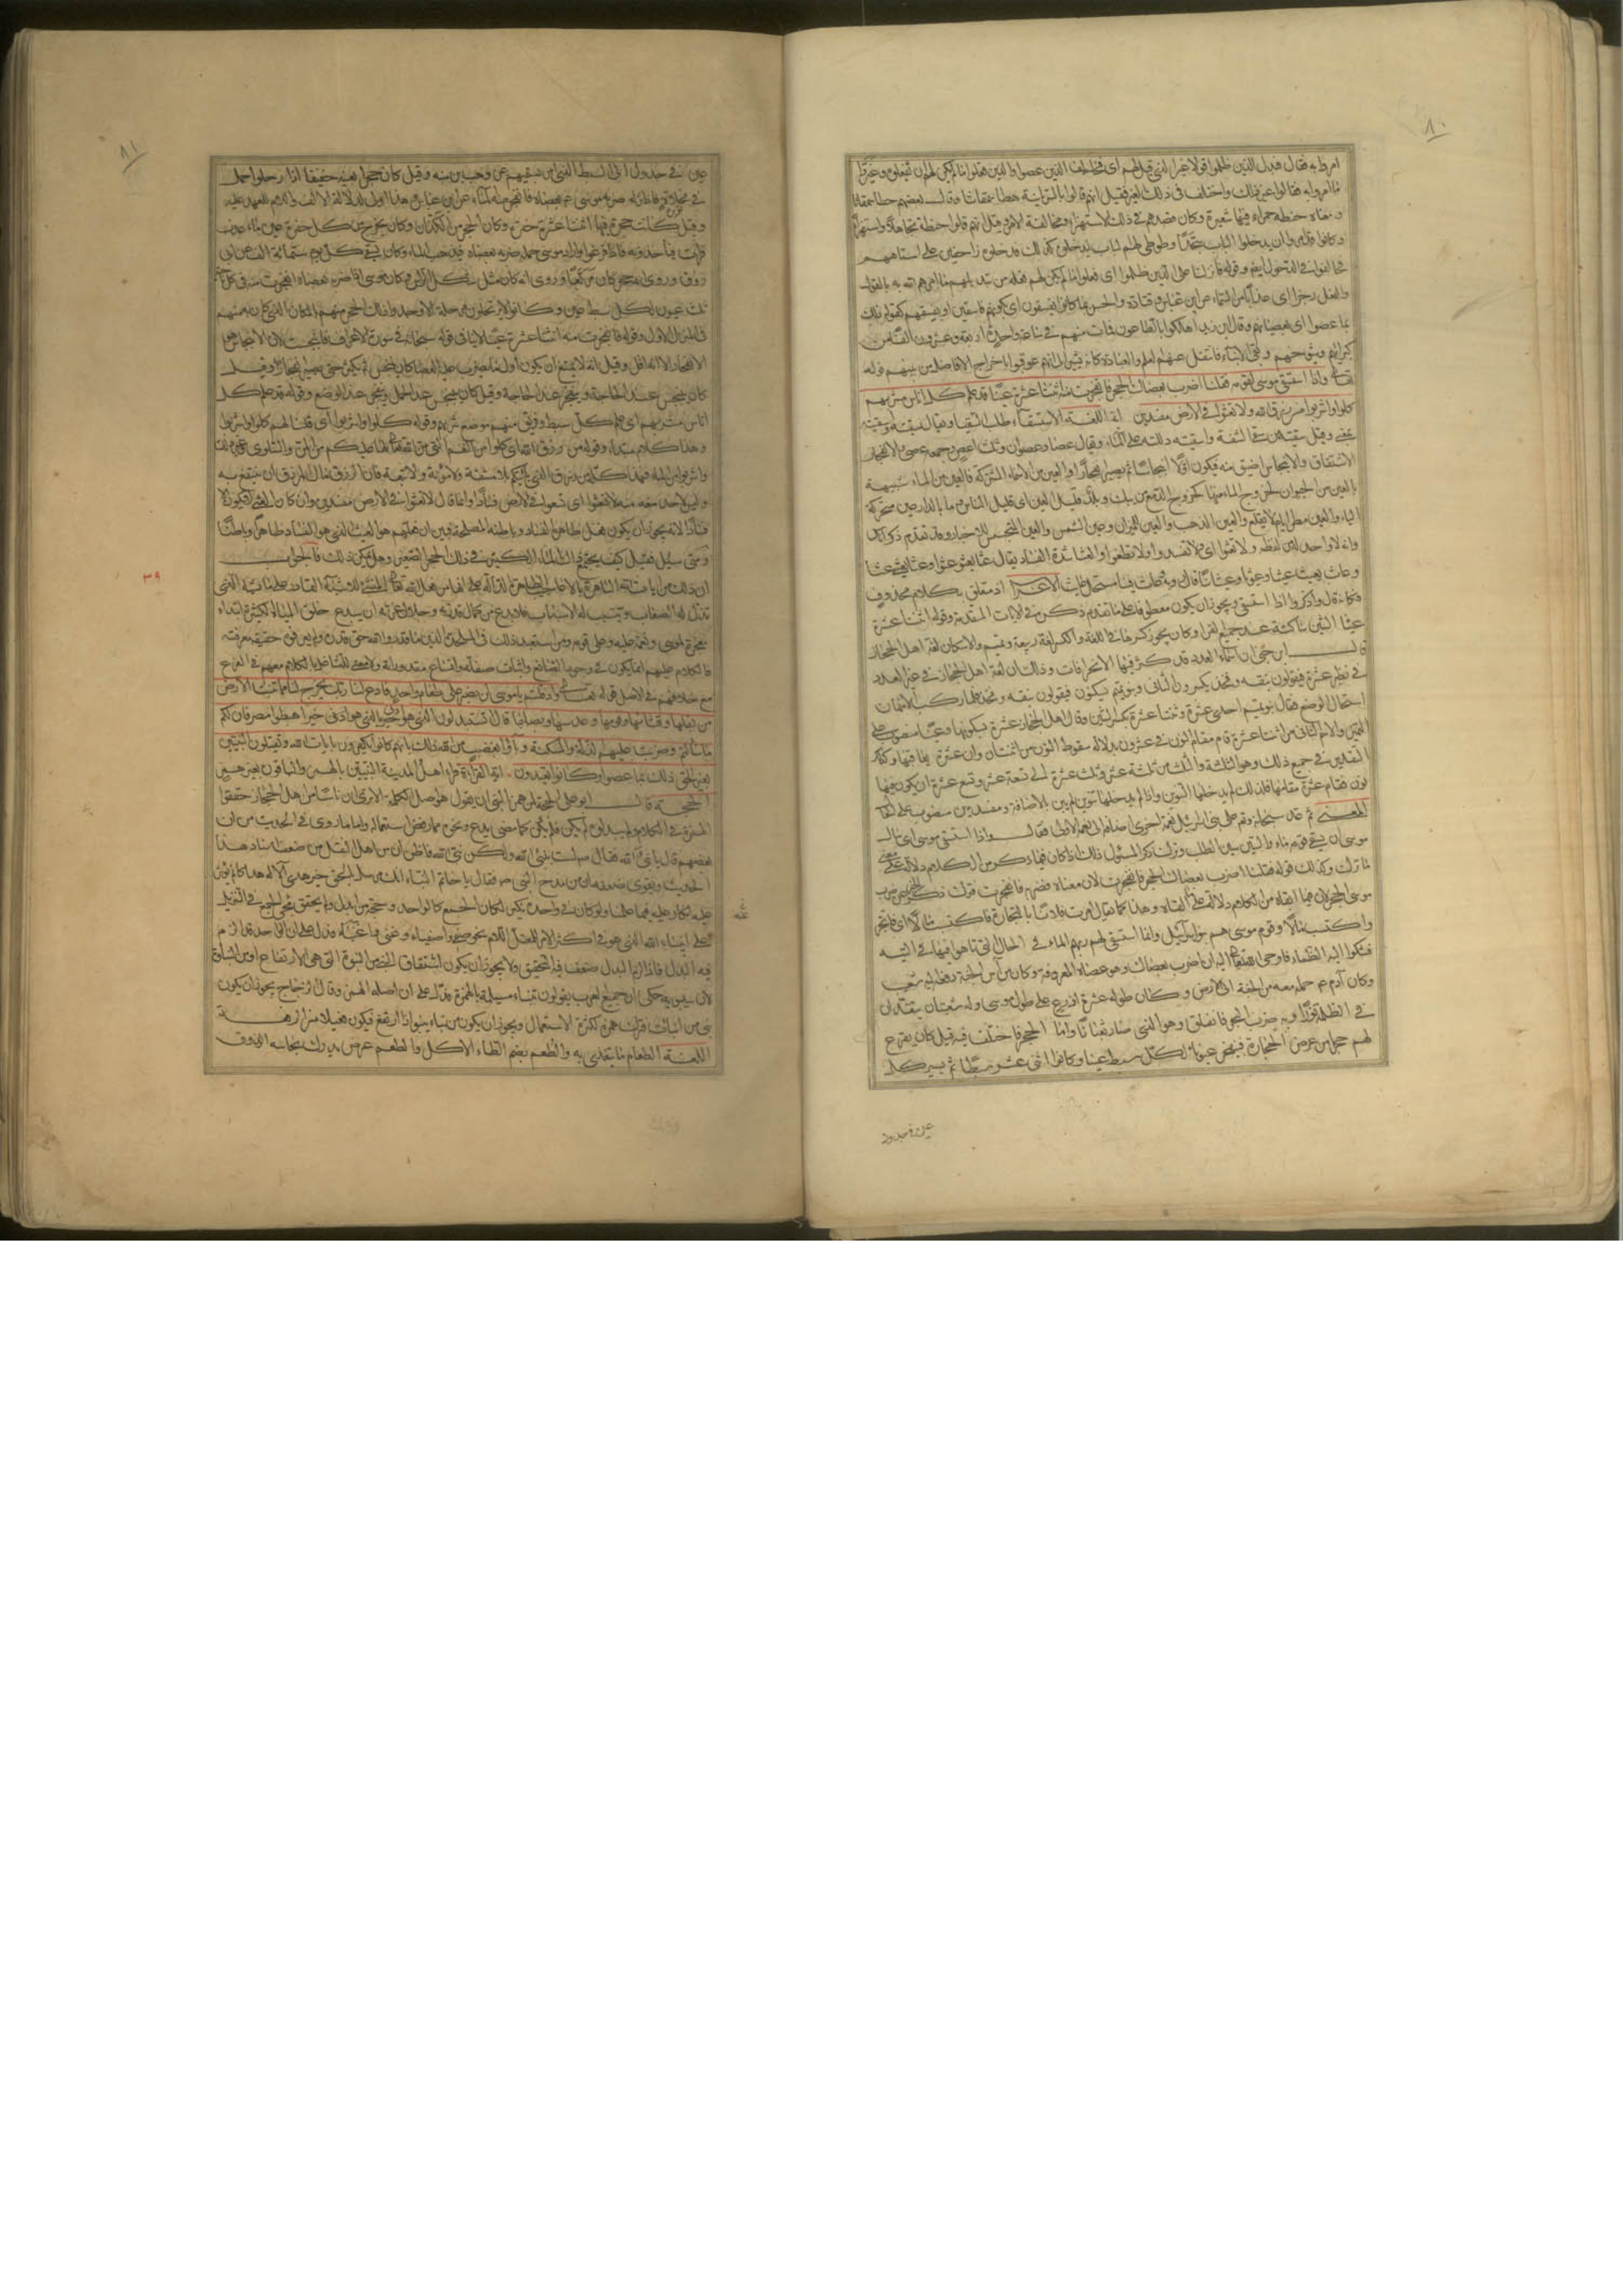 ٨٠
امروا به فقال فبدل الذين ظلموا قولا غير الذي قيل لهم اى فخالف الذين عصوا والذين فعلوا ما لم يكن لهم ان يفعلوه وغيروا
ما امروا به فقالوا غير ذلك واختلف في ذلك الغير فقيل انهم قالوا بالسريانية هطا سمقاثا وقال بعضهم حطا سمقاثا
ومعناه حنطة حمراء فيها شعيرة وكان قصدهم في ذلك الاستهزاء ومخالفة الامر وقيل انهم قالوا حنطة تجاهلا واستهزاء
وكانوا قد امروا ان يدخلوا الباب سجدا وطوطئ لهم الباب ليدخلوه كذلك فدخلوه زاحفين على استاههم
فخالفوا في الدخول ايضا وقوله فانزلنا على الذين ظلموا اى فعلوا ما لم يكن لهم فعله من تبديلهم ما امرهم الله به بالقول
والفعل رجزا اى عذابا من السماء عن ابن عباس وقتادة والحسن بما كانوا يفسقون اى بكونهم فاسقين او بفسقهم كقوله ذلك
بما عصوا اى بعصيانهم وقال ابن زيد اهلكوا بالطاعون فمات منهم في ساعة واحدة اربعة وعشرون الفا من
كبرائهم وشيوخهم وبقى الابناء فانتقل عنهم العلم والعبادة كانه يشير الى انهم عوقبوا باخراج الافاضل من بينهم قوله
تعالى واذا استسقى موسى لقومه فقلنا اضرب بعصاك الحجر فانفجرت منه اثنتا عشرة عينا قد علم كل اناس مشربهم
كلوا واشربوا من رزق الله ولا تعثوا في الارض مفسدين اية اللغة الاستسقاء طلب السقيا ويقال سقيته واسقيته
بمعنى وقيل سقيته من سقى الشفة واسقيته دللته على الماء ويقال عصا وعصوان وثلث اعص وجمعه عصى والانفجار
الانشقاق والانبجاس اضيق منه فيكون اولا انبجاسا ثم يصير انفجارا والعين من الاسماء المشتركة فالعين من الماء شبيهة
بالعين من الحيوان لخروج الماء منها كخروج الدمع
الياء والعين مطر ايام لا يقلع والعين الذهب والعين الميزان وعين الشمس والعين المتجسس للاخبار وقد تقدم ذكر اناس
وانه لا واحد له من لفظه ولا تعثوا اى لا تفسدوا ولا تطغوا والعثا شدة الفساد يقال عثا يعثو عثوا وعثى يعثى عثا
وعاث يعيث عيثا وعيوثا وعيثانا قال الاعراب اذ متعلق بكلام محذوف
فكانه قال واذكروا اذا استسقى ويجوز ان يكون معطوفا على ما تقدم ذكره في الايات المتقدمة وقوله اثنتا عشرة
عينا الشين ساكنة عند جميع القراء وكان يجوز كسرها في اللغة والكسر لغة ربيعة وتميم والاسكان لغة اهل الحجاز
قال ابن جنى ان اسماء العدد قد كثر فيها الانحرافات وذلك ان لغة اهل الحجاز في غير العدد
في نظير عشرة فيقولون نبقة وفخذ يكسرون الثاني وبنو تميم تسكون فيقولون نبقة وفخذ فلما ركب الاسمان
استحال الوضع فقال بنو تميم احدى عشرة وثنتا عشرة بكسر الشين وقال اهل الحجاز عشرة بسكونها وعينا منصوب على
التمييز والاسم الثاني من اثنتا عشرة قام مقام النون في عشرون بدلالة سقوط النون من اثنتان وان عشرة يعاقبها وكذلك
التقدير في جميع ذلك وهو الثلثة والثلث من ثلثة عشر وثلث عشرة الى تسعة عشر وتسع عشرة ان يكون فيها
نون فقام عشرة مقامها فلذلك لم يدخلها التنوين واذا لم يدخلها تنوين لم يبين بالاضافة ومفسدين منصوب على الحال
المعنى ثم عد سبحانه وتعالى على بنى اسرائيل نعمة اخرى اضافها الى نعمه الاولى فقال واذا استسقى موسى اى سال
موسى ان يسقى قومه ماء والسين سين الطلب وترك ذكر المسئول ذلك اذ كان فيما ذكر من الكلام دلالة على معنى
ما ترك وكذلك قوله فقلنا اضرب بعصاك الحجر فانفجرت لان معناه فضربه فانفجرت فترك ذكر الخبر عن ضرب
موسى الحجر لان فيما ابقاه من الكلام دلالة على ما القاه وهذا كما يقال امرت فلانا بالتجارة فاكتسب مالا اى فاتجر
واكتسب مالا وقوم موسى هم بنو اسرائيل وانما استسقى لهم ربهم الماء في الحال التي تاهوا فيها في التيه
فشكوا اليه الظماء فاوحى الله تعالى اليه ان اضرب بعصاك وهو عصاه المعروفة وكان من آس الجنة دفعها اليه شعيب
وكان آدم ع حمله معه من الجنة الى الارض وكان طوله عشرة اذرع على طول موسى وله شعبتان يتقدان
في الظلمة نورا وبه ضرب البحر فانفلق وهو الذي صار ثعبانا واما الحجر فاختلف فيه فقيل كان يقرع
لهم حجرا من عرض الحجارة فينفجر عيونا لكل سبط عينا وكانوا اثنى عشر سبطا ثم يسير كل
عين في جدول
٨١
عين في جدول الى السبط الذي امر بسقيهم عن وهب بن منبه وقيل كان حجرا بعينه خفيفا اذا رحلوا حمل
في مخلاة فاذا نزلوا ضربه موسى ع بعصاه فانفجر منه الماء عن ابن عباس وهذا اولى لدلالة الالف واللام للعهد عليه
وقيل كانت حجرة فيها اثنتا عشرة حفرة وكان الحجر من الكذان وكان يخرج من كل حفرة عين ماء عذب
فرات فياخذونه فاذا فرغوا واراد موسى حمله ضربه بعصاه فيذهب الماء وكان يسقى كل يوم ستمائة الف عن ابى
روق وروى انه حجر كان مربعا وروى انه كان مثل شكل الراس وكان موسى اذا ضربه بعصاه انفجرت منه في كل ناحية
ثلث عيون لكل سبط عين وكانوا لا يرتحلون مرحلة الا وجدوا ذلك الحجر منهم بالمكان الذي كان به منهم
في المنزل الاول وقوله فانفجرت منه اثنتا عشرة عينا لا ينافي قوله سبحانه في سورة الاعراف فانبجست لان الانبجاس هو
الانفجار الا انه اقل وقيل انه لا يمتنع ان يكون اول ما يضرب عليه العصا كان ينبجس ثم يكثر حتى يصير انفجارا وقيل
كان ينبجس عند الحاجة وينفجر عند الحاجة وقيل كان ينبجس عند الحمل وينفجر عند الوضع وقوله قد علم كل
اناس مشربهم اى علم كل سبط وفريق منهم موضع شربهم وقوله كلوا واشربوا اى قلنا لهم كلوا واشربوا
وهذا كلام مبتداء وقوله من رزق الله اى كلوا من النعم التي من الله تعالى بها عليكم من المن والسلوى وغير ذلك
واشربوا من الماء فهذا كله من رزق الله الذي ياتيكم بلا مشقة ولا مؤنة ولا تبعة فان الرزق ما للمرزوق ان ينتفع به
وليس لاحد منعه منه ولا تعثوا اى لا تسعوا في الارض فسادا وانما قال لا تعثوا في الارض مفسدين وان كان العثى لا يكون الا
فسادا لانه يجوز ان يكون فعل ظاهره الفساد وباطنه المصلحة فبين ان فعلهم هو العيث الذي هو الفساد ظاهرا وباطنا
ومتى سئل فقيل كيف يجتمع ذلك الماء الكثير في ذلك الحجر الصغير وهل يمكن ذلك فالجواب
ان ذلك من آيات الله الباهرة والاعاجيب الظاهرة الدالة على انها من فعل الله تعالى المنشئ للاشياء القادر على ما يشاء الذي
تذل له الصعاب ويتسبب له الاسباب فلا بدع من كمال قدرته وجلال عزته ان يبدع خلق المياه الكثيرة ابتداء
معجزة لموسى ونعمة عليه وعلى قومه ومن استبعد ذلك من الملحدة الذين ما قدروا الله حق قدره ولم يعرفوه حقيقة معرفته
فالكلام عليهم انما يكون في وجود الصانع واثبات صفاته واتساع مقدوراته ولا معنى للتشاغل بالكلام معهم في الفرع
مع خلافهم في الاصل قوله تعالى واذ قلتم يا موسى لن نصبر على طعام واحد فادع لنا ربك يخرج لنا مما تنبت الارض
من بقلها وقثائها وفومها وعدسها وبصلها قال اتستبدلون الذي هو ادنى بالذي هو خير اهبطوا مصرا فان لكم
ما سالتم وضربت عليهم الذلة والمسكنة وباؤا بغضب من الله ذلك بانهم كانوا يكفرون بايات الله ويقتلون النبيين
بغير الحق ذلك بما عصوا وكانوا يعتدون اية القراءة قراء اهل المدينة النبيئين بالهمز والباقون بغير همز
الحجة قال ابو على الحجة لمن همز النبى ان يقول هو اصل الكلمة الا ترى ان ناسا من اهل الحجاز حققوا
الهمزة في الكلام ولم يبدلوه
بعضهم قال يا نبىء الله فقال لست بنبىء الله ولكن نبى الله فاظن ان من اهل النقل من ضعف اسناد هذا
الحديث ويقوى ضعفه ان من مدح النبى ص فقال يا خاتم النباء انك مرسل بالحق خير هدى الاله هداكا لم يؤثر
عليه انكار عليه فيما علمنا ولو كان في واحده نكير لكان الجمع كالواحد وحجة من ابدل ولم يحقق مجئ الجمع في التنزيل
على انبياء الله الذي هو في اكثر الامر للمعتل اللام نحو صفى واصفياء وغنى واغنياء فدل على ان الواحد قد الزم
فيه البدل فاذا لزم البدل ضعف فيه التحقيق ولا يجوز ان يكون اشتقاق النبى من النبوة التي هى الارتفاع او من النباوة
لان سيبويه حكى ان جميع العرب يقولون تنباء مسيلمة بالهمزة فدل على ان اصله الهمز وقال الزجاج يجوز ان يكون
نبى من انبات فترك همزه لكثرة الاستعمال ويجوز ان يكون من نبا ينبو اذا ارتفع فيكون فعيلا من الرفعة
اللغة الطعام ما يتغذى به والطعم بضم الطاء الاكل والطعم عرض يدرك بحاسة الذوق
٣٩